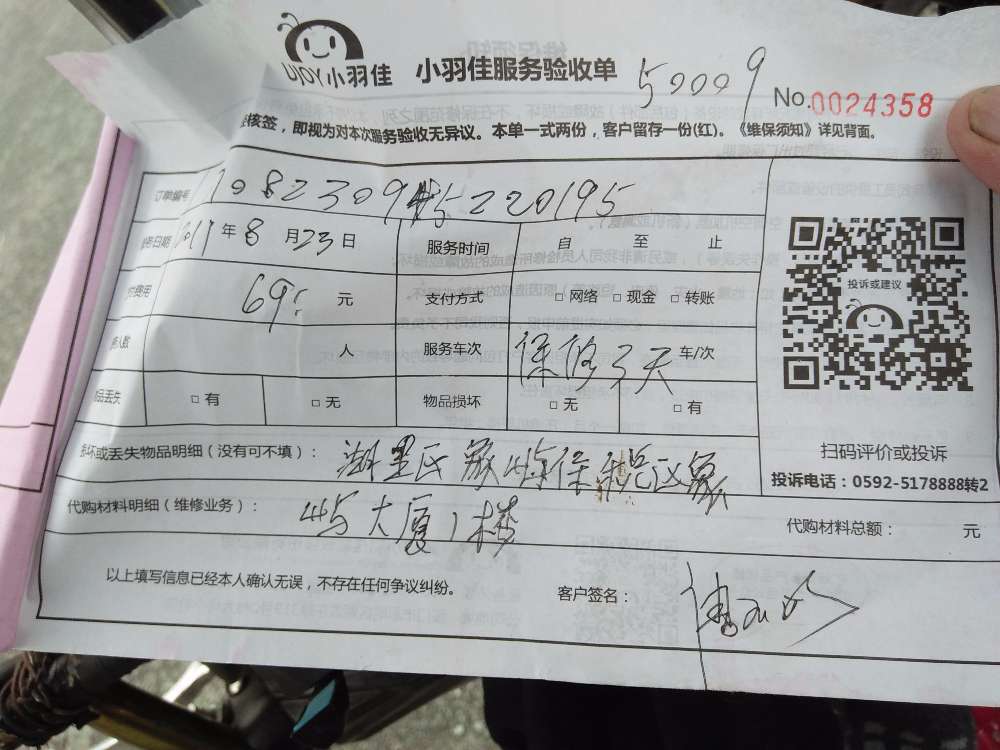 UJOY小羽佳 小羽佳服务验收单 50009 No.0024358
核签，即视为对本次服务验收无异议。本单一式两份，客户留存一份(红)。《维保须知》详见背面。
订单编号
务日期 2017年8月23日 服务时间 自 至 止
费用 69 元 支付方式 □网络 □现金 □转账
人数 人 服务车次 保修3天 车/次
品丢失 □有 □无 物品损坏 □无 □有
投诉或建议
扫码评价或投诉
投诉电话：0592-5178888转2
坏或丢失物品明细（没有可不填）：湖里区象屿保税区象
代购材料明细（维修业务）：屿大厦1楼 代购材料总额： 元
以上填写信息已经本人确认无误，不存在任何争议纠纷。 客户签名：